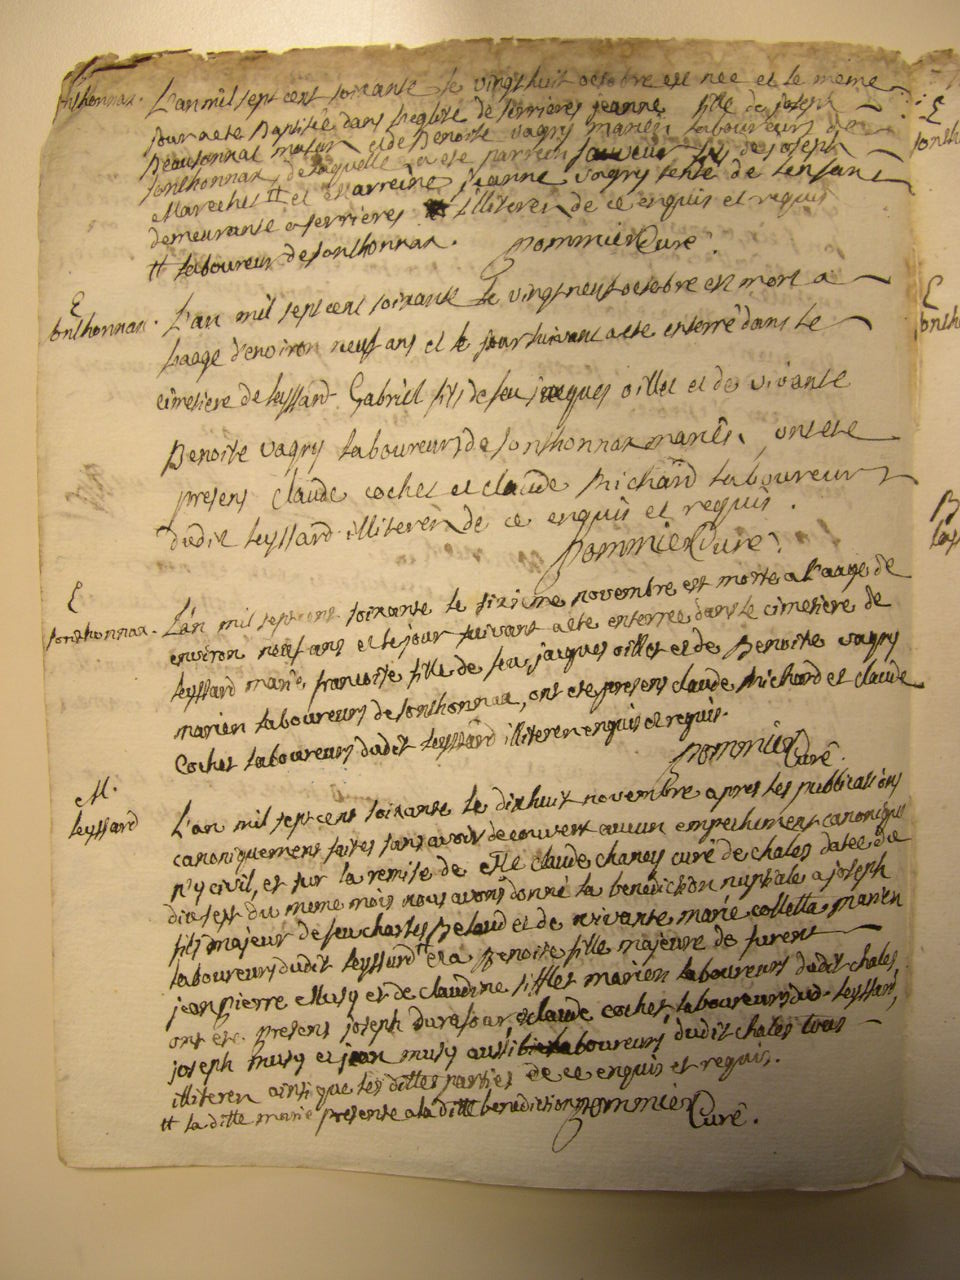 sonthonnax. L'an mil sept cent soixante le vingt huit octobre est née et le même
jour a été Baptisée dans l'eglise de serrieres jeanne fille de joseph
Beausonnal et de Benoite vagry mariés laboureurs de
sonthonnax, de laquelle a été parrein fils de joseph
Marechet # et Marreine jeanne vagry tente de lenfant
demeurante a serrieres illiteres de ce enquis et requis
# laboureur de sonthonnax. pommier Curé.
E
sonthonnax. L'an mil sept cent soixante le vingt neuf octobre est mort a
laage d'environ neuf ans et le jour suivant a été enterré dans le
cimetiere de leyssard Gabriel fils de feu jacques oillet et de vivante
Benoite vagry laboureurs de sonthonnax mariés, ont été
presens claude cochet et claude Michard laboureurs
dudit leyssard illiteres de ce enquis et requis.
pommier Curé.
E
sonthonnax. L'an mil sept cent soixante le sixieme novembre est morte a l'aage de
environ neuf ans et le jour suivant a été enterrée dans le cimetiere de
leyssard francoise fille de feu jacques oillet et de Benoite vagry
mariés laboureurs de sonthonnax, ont été presens claude Michard et claude
Cochet laboureurs dudit leyssard illiteres enquis et requis.
pommier Curé.
M.
leyssard L'an mil sept cent soixante le dixhuit novembre apres les publications
canoniquement faites sans avoir decouvert aucun empechement canonique
ny civil, et sur la remise de Mre claude chaney curé de chales datée du
dixsept du meme mois nous avons donné la benediction nuptiale a joseph
fils majeur de feu charles Belaud et de vivante marie colletta mariés
laboureurs dudit leyssard # et a Benoite fille majeure de furent
jean pierre Musy et de claudine sifflet mariés laboureurs dudit chales,
ont été presens joseph durafour claude cochet laboureurs dud. leyssard,
joseph musy et jean musy aussi laboureurs dudit chales tous
illiteres ainsi que les dittes parties de ce enquis et requis.
# la ditte marie presente a la ditte benediction pommier Curé.